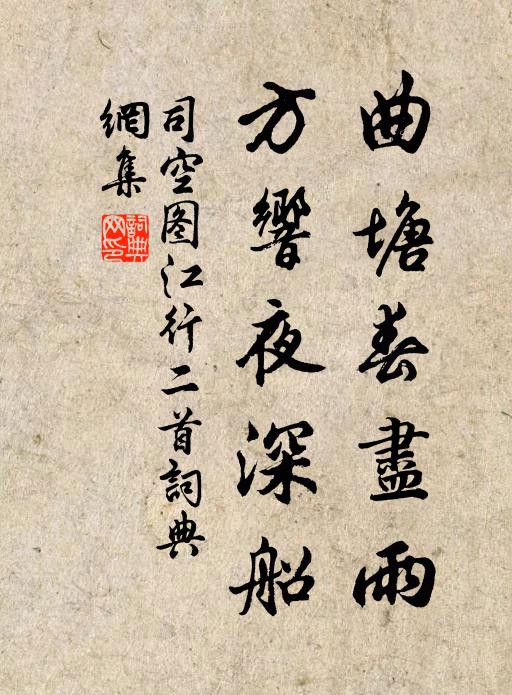 曲塘春盡雨
方響夜深船
司空图江行二首詞典
網集
詞典
网印